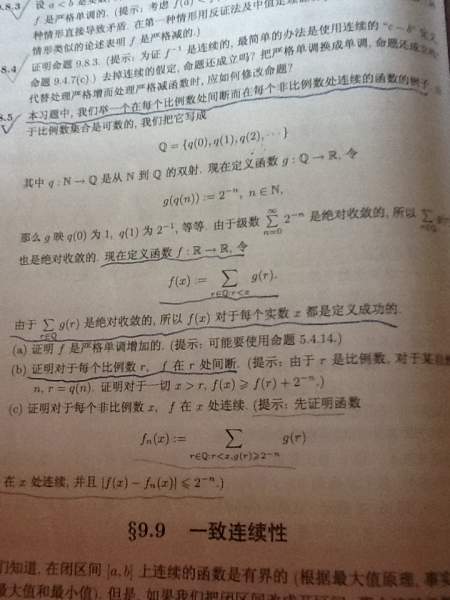 8.3
f 是严格单调的. (提示: 考虑
种情形直接导致矛盾. 在第一种情形用反证法及中值定理
情形类似的论述表明 f 是严格减的.)
8.4 证明命题 9.8.3. (提示: 为证 f⁻¹ 是连续的, 最简单的办法是使用连续的 "ε-δ" 定义
命题 9.4.7(c).) 去掉连续的假定, 命题还成立吗? 把严格单调换成单调, 命题还成立吗?
代替处理严格增而处理严格减函数时, 应如何修改命题?
8.5 本习题中, 我们举一个在每个比例数处间断而在每个非比例数处连续的函数的例子.
于比例数集合是可数的, 我们把它写成
ℚ = {q(0), q(1), q(2), ⋯}
其中 q : ℕ → ℚ 是从 ℕ 到 ℚ 的双射. 现在定义函数 g : ℚ → ℝ, 令
g(q(n)) := 2⁻ⁿ, n ∈ ℕ,
那么 g 映 q(0) 为 1, q(1) 为 2⁻¹, 等等. 由于级数 ∑_{n=0}^{∞} 2⁻ⁿ 是绝对收敛的, 所以 ∑_{r∈ℚ}
也是绝对收敛的. 现在定义函数 f : ℝ → ℝ, 令
f(x) := ∑_{r∈ℚ:r<x} g(r).
由于 ∑_{r∈ℚ} g(r) 是绝对收敛的, 所以 f(x) 对于每个实数 x 都是定义成功的.
(a) 证明 f 是严格单调增加的. (提示: 可能要使用命题 5.4.14.)
(b) 证明对于每个比例数 r, f 在 r 处间断. (提示: 由于 r 是比例数, 对于某自
n, r = q(n). 证明对于一切 x > r, f(x) ⩾ f(r) + 2⁻ⁿ.)
(c) 证明对于每个非比例数 x, f 在 x 处连续. (提示: 先证明函数
fₙ(x) := ∑_{r∈ℚ:r<x,g(r)⩾2⁻ⁿ} g(r)
在 x 处连续, 并且 |f(x) − fₙ(x)| ⩽ 2⁻ⁿ.)
§9.9 一致连续性
们知道, 在闭区间 [a, b] 上连续的函数是有界的 (根据最大值原理, 事实
最大值和最小值). 但是, 如果我们把闭区间